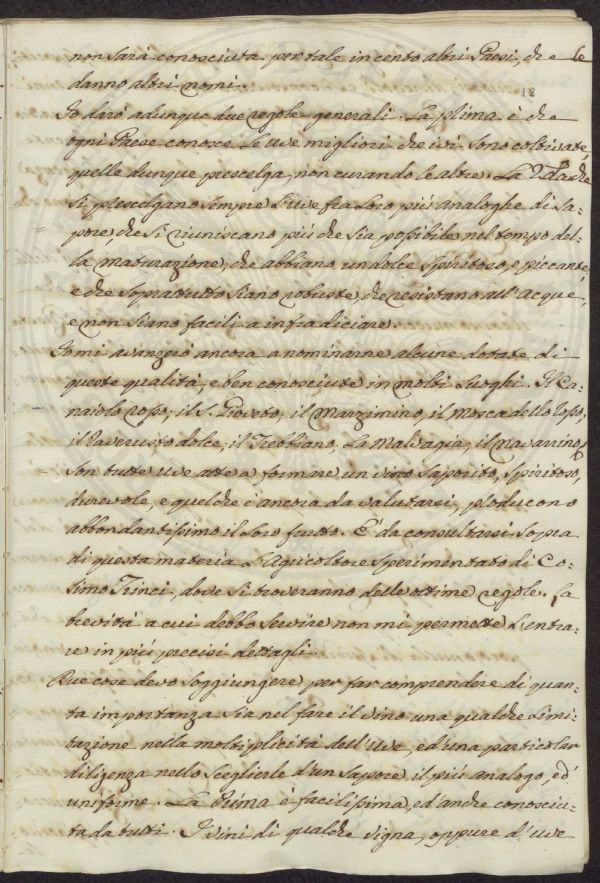 non sarà conosciuta per tale in cento altri Paesi, che le
danno altri nomi.
12
Io darò adunque due regole generali. La prima è che
ogni Paese conosce le uve migliori che ivi sono coltivate,
quelle dunque prescelga, non curando le altre. La 2.da che
si prescelgano sempre l'uve fra loro più analoghe di sa=
pore, che si riuniscano più che sia possibile nel tempo del=
la maturazione, che abbiano un dolce spiritoso, e piccante,
e che soprattutto siano robuste, che resistano all'acque,
e non siano facili a infradiciare.
Io mi avanzerò ancora a nominarne alcune dotate di
queste qualità, e ben conosciute in molti luoghi. Il Ca=
naiolo rosso, il S. Gioveto, il Marzimino, il Moscadello rosso,
il Raverusto dolce, il Trebbiano, la Malvagia, il Navarrino
son tutte uve atte a formare un vino saporito, spiritoso,
durevole, e quel che è ancora da valutarsi, producono
abbondantissimo il loro frutto. È da consultarsi sopra
di questa materia l'Agricoltore sperimentato di Co=
simo Trinci, dove si troveranno delle ottime regole. La
brevità a cui debbo servire non mi permette l'entra=
re in più precisi dettagli.
Due cose devo soggiungere per far comprendere di quan=
ta importanza sia nel fare il vino una qualche limi=
tazione nella moltiplicità dell'uve, ed una particolar
diligenza nello sceglierle d'un sapore, il più analogo, ed
uniforme. La Prima è facilissima, ed anche conosciu=
ta da tutti. I vini di qualche vigna, oppure d'uve